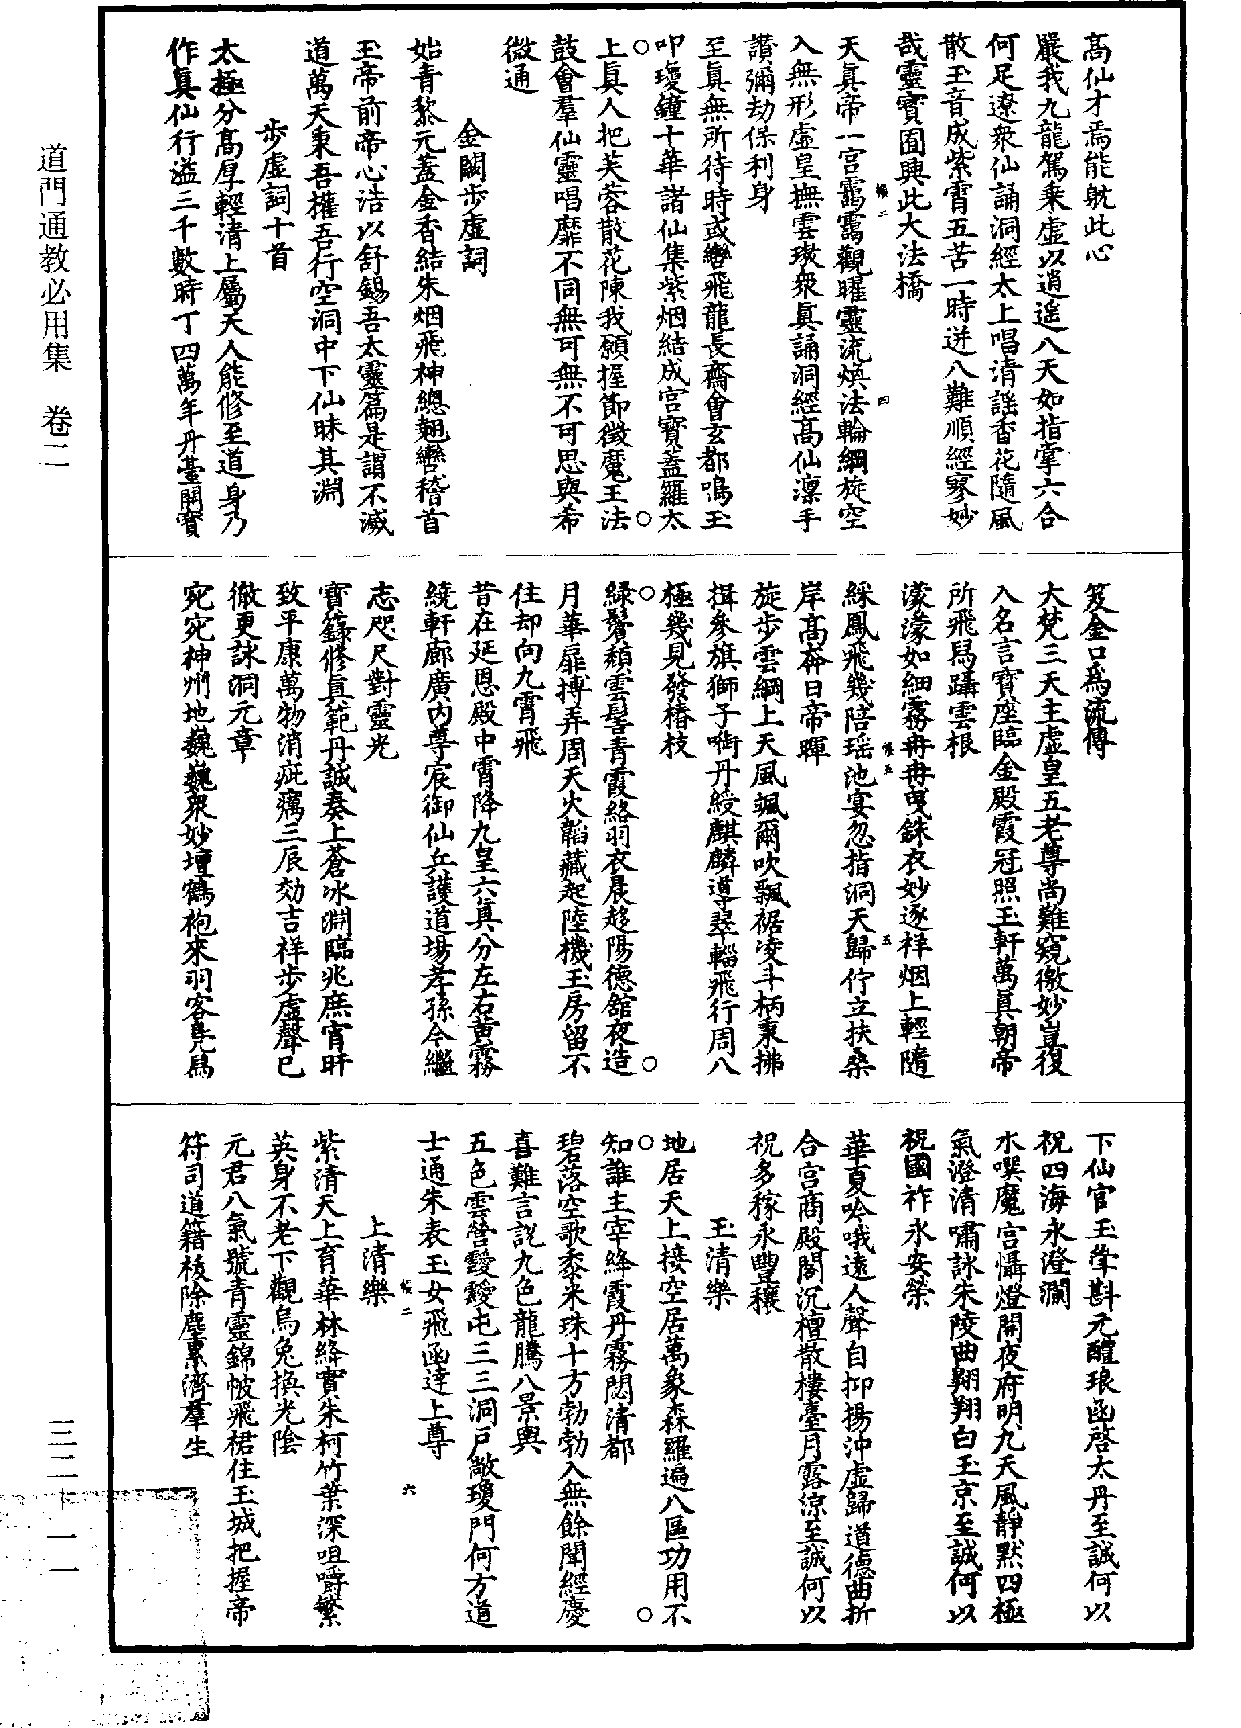 道門通教必用集　卷二
高仙才焉能躭此心
嚴我九龍駕乘虛以逍遥八天如指掌六合
何足遼衆仙誦洞經太上唱清謡香花隨風
散玉音成紫霄五苦一時迸八難順經寥妙
哉靈寶囿興此大法橋
天真帝一宫靄靄觀曜靈流煥法輪綱旋空
入無形虛皇撫雲璈衆真誦洞經高仙凛手
讚彌劫保利身
至真無所待時或轡飛龍長齋會玄都鳴玉
叩瓊鐘十華諸仙集紫烟結成宫寶蓋羅太
上真人把芙蓉散花陳我願握節徵魔王法
鼓會羣仙靈唱靡不同無可無不可思與希
微通
金闕步虛詞
始青黎元蓋金香結朱烟飛神總翹轡稽首
玉帝前帝心浩以舒錫吾太靈篇是謂不滅
道萬天秉吾權吾行空洞中下仙昧其淵
步虛詞十首
太極分高厚輕清上屬天人能修至道身乃
作真仙行溢三千數時丁四萬年丹臺開寶
笈金口爲流傳
大梵三天主虛皇五老尊尚難窺徼妙豈復
入名言寶座臨金殿霞冠照玉軒萬真朝帝
所飛舄躡雲根
濛濛如細霧冉冉曳銖衣妙逐祥烟上輕隨
綵鳳飛幾陪瑶池宴忽指洞天歸佇立扶桑
岸高奔日帝暉
旋步雲綱上天風颯爾吹飄裾凌斗柄秉拂
揖參旗獅子啣丹綬麒麟導翠輜飛行周八
極幾見發椿枝
緑鬢頹雲髻青霞絡羽衣晨趍陽德舘夜造
月華扉搏弄周天火韜藏起陸機玉房留不
住却向九霄飛
昔在延恩殿中霄降九皇六真分左右黄霧
繞軒廊廣内尊宸御仙兵護道場孝孫今繼
志咫尺對靈光
寶籙修真範丹誠奏上蒼冰淵臨兆庶宵旰
致平康萬物消疵癘三辰効吉祥步虛聲已
徹更詠洞元章
宛宛神州地巍巍衆妙壇鶴袍來羽客鳧舄
下仙官玉斝斟元醴琅函啓太丹至誠何以
祝四海永澄瀾
水噀魔宫懾燈開夜府明九天風靜默四極
氣澄清嘯詠朱陵曲翱翔白玉京至誠何以
祝國祚永安榮
華夏吟哦遠人聲自抑揚沖虛歸道德曲折
合宫商殿閣沉檀散樓臺月露涼至誠何以
祝多稼永豐穰
玉清樂
地居天上接空居萬象森羅遍八區功用不
知誰主宰絳霞丹霧閟清都
碧落空歌黍米珠十方勃勃入無餘聞經慶
喜難言説九色龍騰八景輿
五色雲營靉靉屯三三洞戸敞瓊門何方道
士通朱表玉女飛函逹上尊
上清樂
紫清天上育華林絳實朱柯竹葉深咀嚼繁
英身不老下觀烏兔換光陰
元君八氣號青靈錦帔飛裙住玉城把握帝
符司道籍校除塵累濟羣生
三二—一一